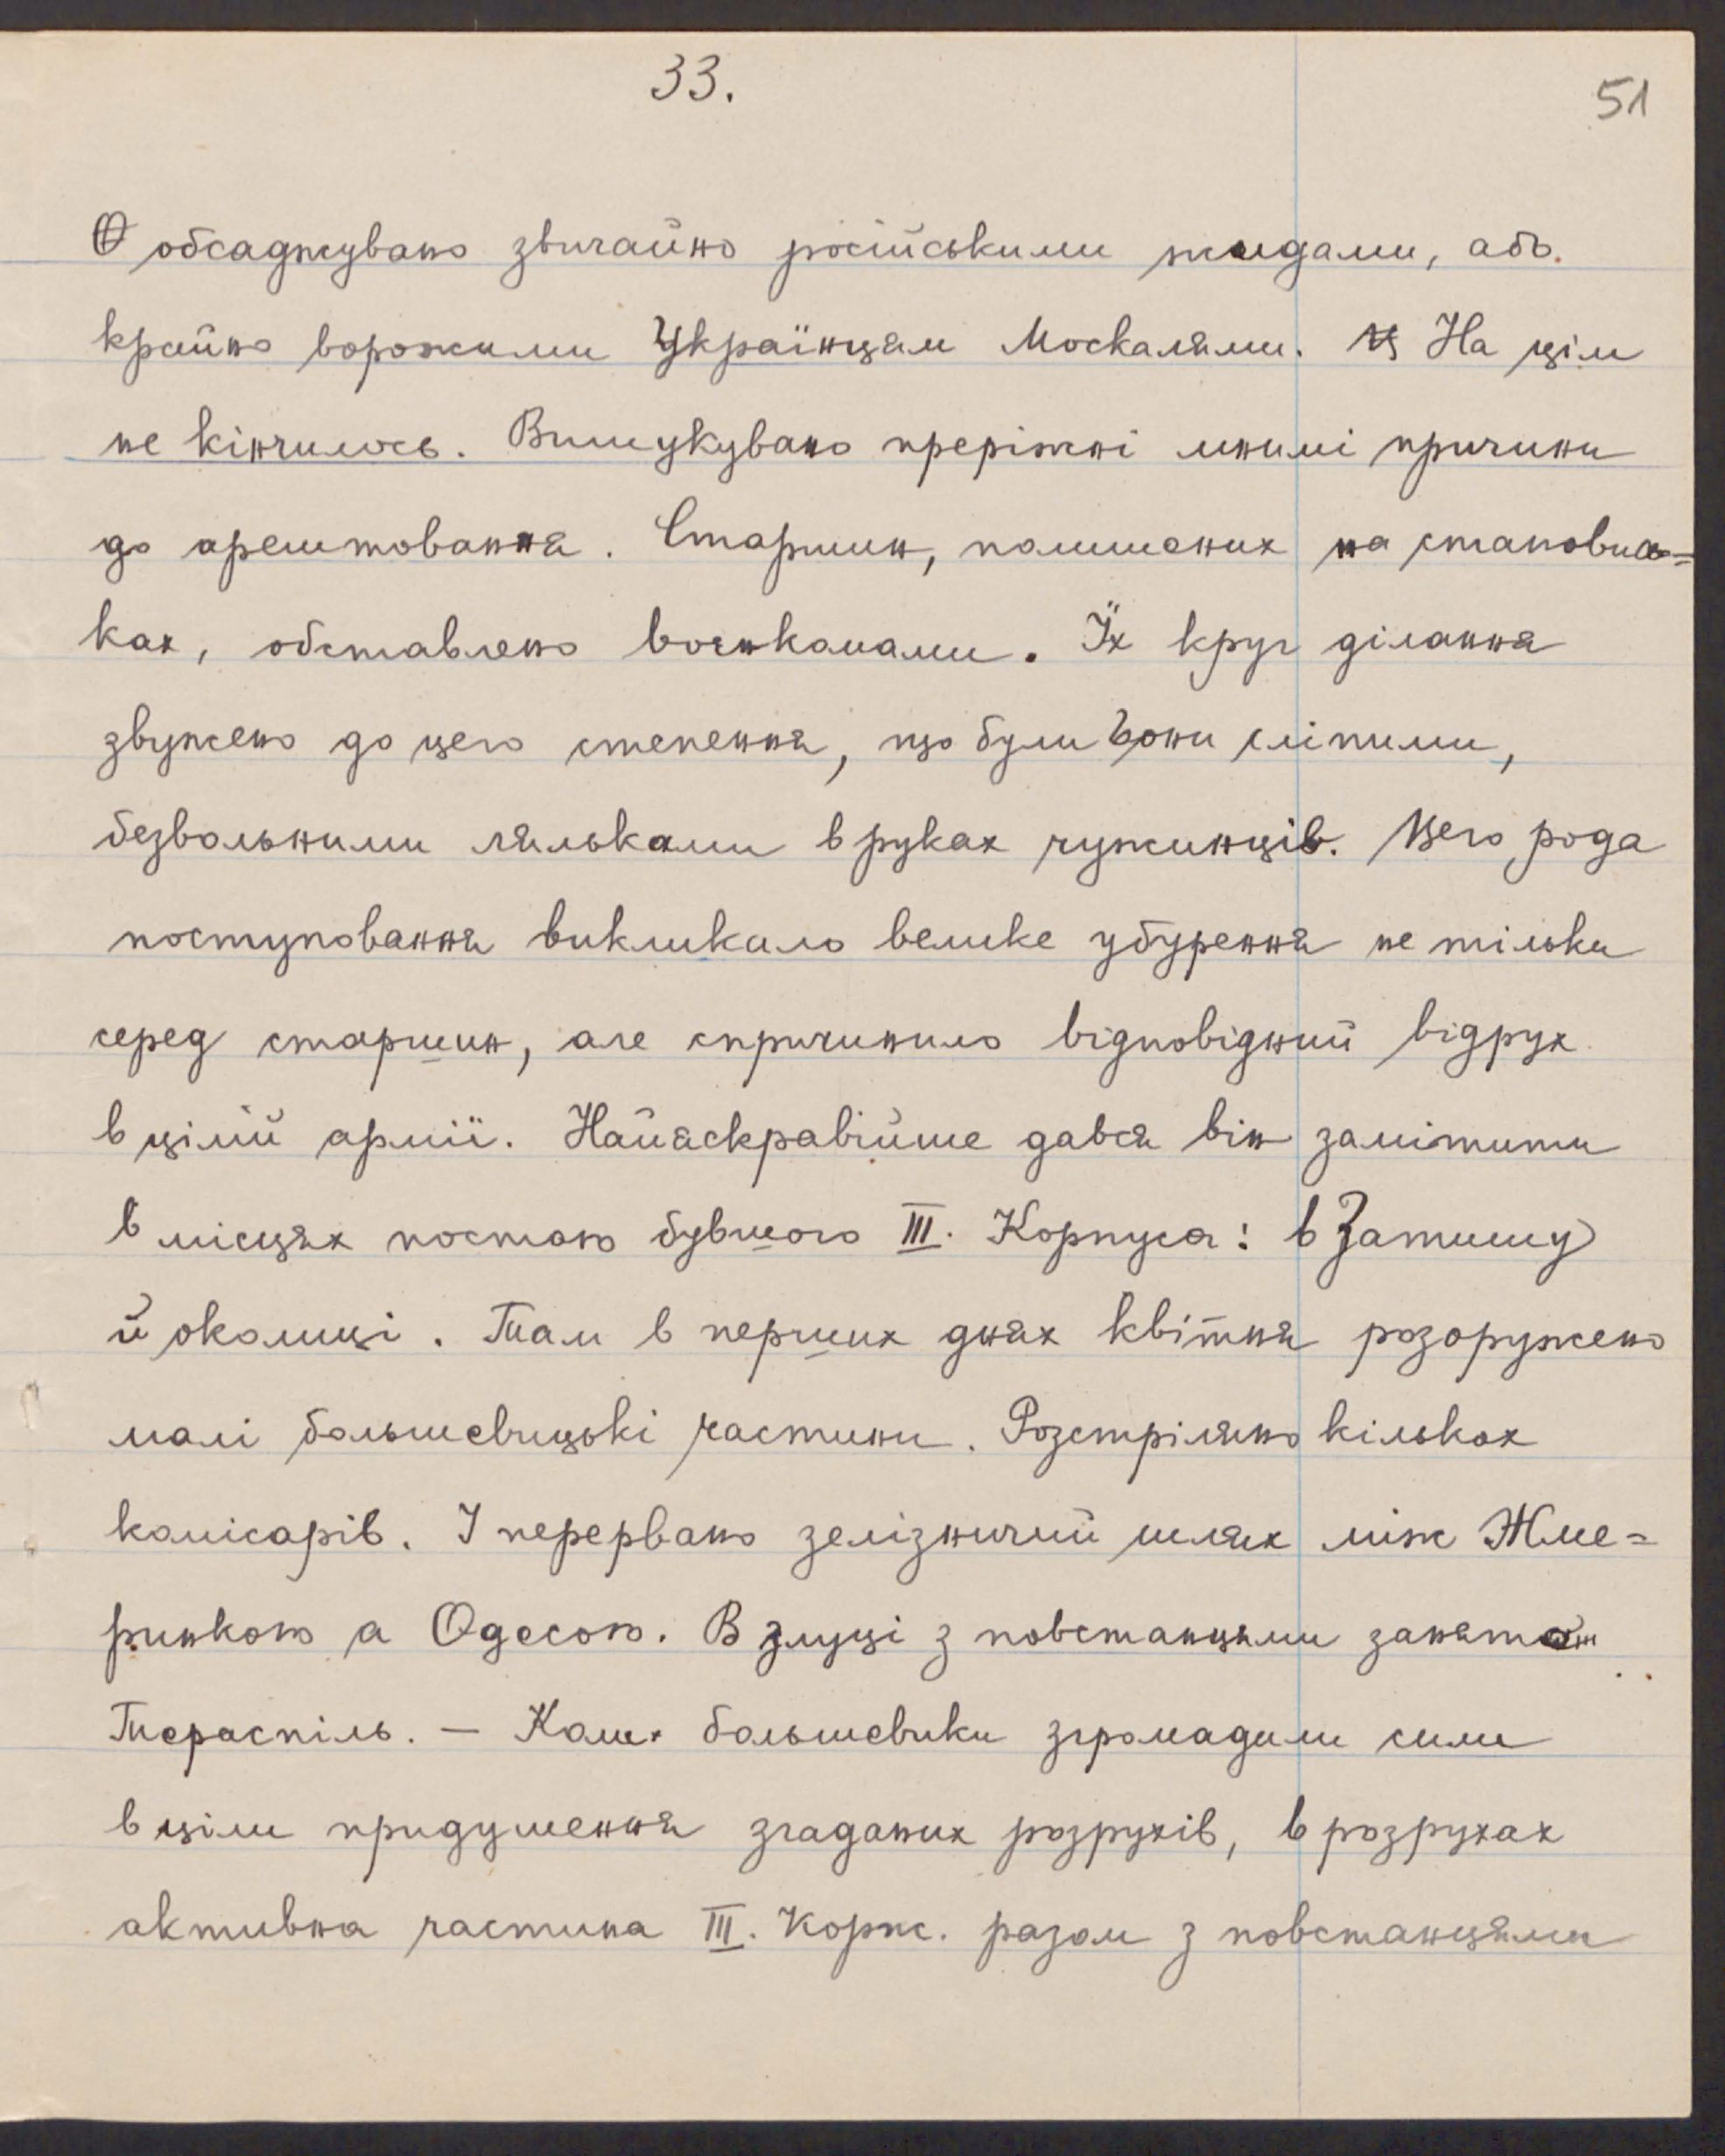 33.
51
обсаджувано звичайно російськими жидами, або.
крайно ворожими Українцям Москалями. На цім
не кінчилось. Вишукувано преріжні мнимі причини
до арештовання. Старшин, полишених на становис=
ках, обставлено воєнкомами. Їх круг ділання
звужено до цего степення, що були вони сліпими,
безвольними ляльками в руках чужинців. Цего рода
поступовання викликало велике убурення не тільки
серед старшин, але спричинило відповідний відрух
в цілій армії. Найяскравійше дався він замітити
в місцях постою бувшого III. Корпуса: в Затишу
й околиці. Там в перших днях квітня розоружено
малі большевицькі частини. Розстріляно кількох
комісарів. І перервано зелізничий шлях між Жме=
ринкою а Одесою. В злуці з повстанцями занято
Тераспіль. — Коли большевики згромадили сили
в ціли придушення згаданих розрухів, в розрухах
активна частина III. Корпс. разом з повстанцями